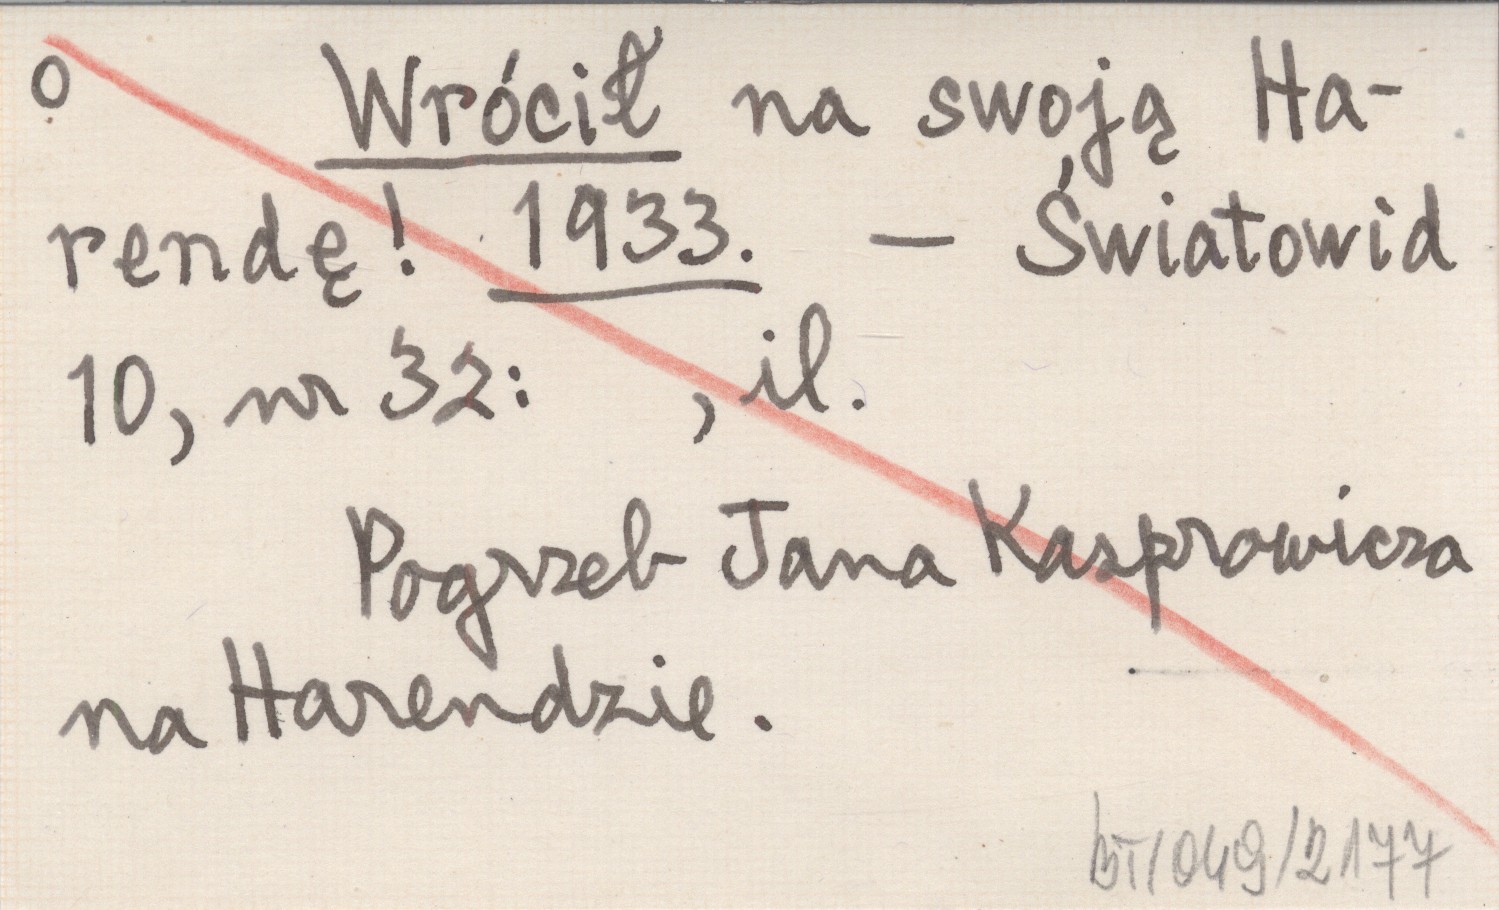 o Wrócił na swoją Ha-
rendę! 1933. – Światowid
10, nr 32: , il.
Pogrzeb Jana Kasprowicza
na Harendzie.
BT/049/2177